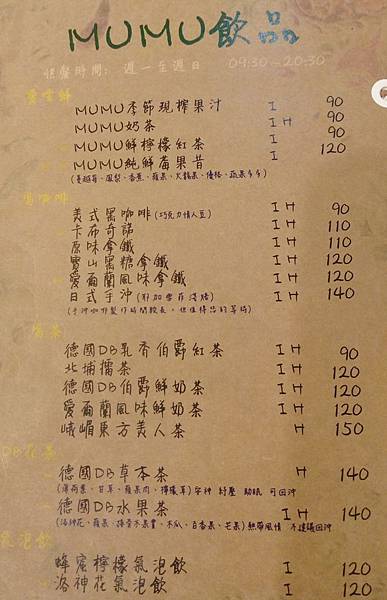 MUMU飲品
供餐時間: 週一至週日 09:30~20:30
MUMU季節現榨果汁 I 90
MUMU奶茶 I H 90
MUMU鮮檸檬紅茶 I 90
MUMU純鮮莓果昔 I 120
(蔓越莓、鳳梨、香蕉、蘋果、火龍果、優格、蔬果多多)
喝咖啡
美式黑咖啡(巧克力情人豆) I H 90
卡布奇諾 I H 110
原味拿鐵 I H 110
寶山黑糖拿鐵 I H 120
愛爾蘭風味拿鐵 I H 120
日式手沖(耶加雪菲淺焙) I H 140
(手沖咖啡製作時間較長，但值得品的等待)
喝茶
德國DB乳香伯爵紅茶 I H 90
北埔擂茶 I H 120
德國DB伯爵鮮奶茶 I H 120
愛爾蘭風味鮮奶茶 I H 120
峨嵋東方美人茶 H 150
DB花茶
德國DB草本茶 H 140
(薄荷葉、甘草、蘋果肉、檸檬草)安神 紓壓 助眠 可回沖
德國DB水果茶 I H 140
(洛神花、蘋果、接骨木果實、木瓜、百香果、芒果)熱帶風情 不建議回沖
氣泡飲
蜂蜜檸檬氣泡飲 I 120
洛神花氣泡飲 I 120